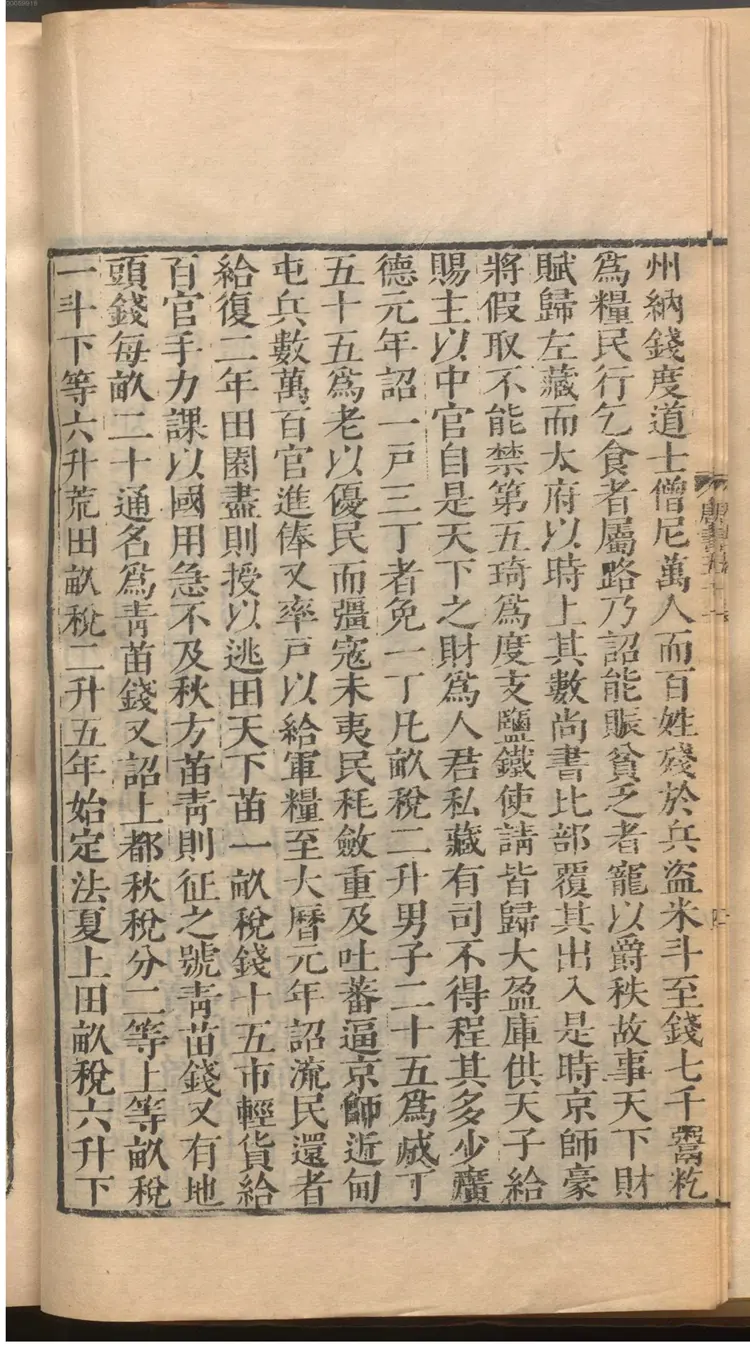 州納錢度道士僧尼萬人而百姓殘於兵盜米斗至錢七千鬻籺
爲糧民行乞食者屬路乃詔能賑貧乏者寵以爵秩故事天下財
賦歸左藏而太府以時上其數尚書比部覆其出入是時京師豪
將假取不能禁第五琦爲度支鹽鐵使請皆歸大盈庫供天子給
賜主以中官自是天下之財爲人君私藏有司不得程其多少廣
德元年詔一戸三丁者免一丁凡畝稅二升男子二十五爲成丁
五十五爲老以優民而彊寇未夷民耗斂重及吐蕃逼京師近甸
屯兵數萬百官進俸又率戸以給軍糧至大曆元年詔流民還者
給復二年田園盡則授以逃田天下苗一畝稅錢十五市輕貨給
百官手力課以國用急不及秋方苗靑則征之號靑苗錢又有地
頭錢每畝二十通名爲靑苗錢又詔上都秋稅分二等上等畝稅
一斗下等六升荒田畝稅二升五年始定法夏上田畝稅六升下